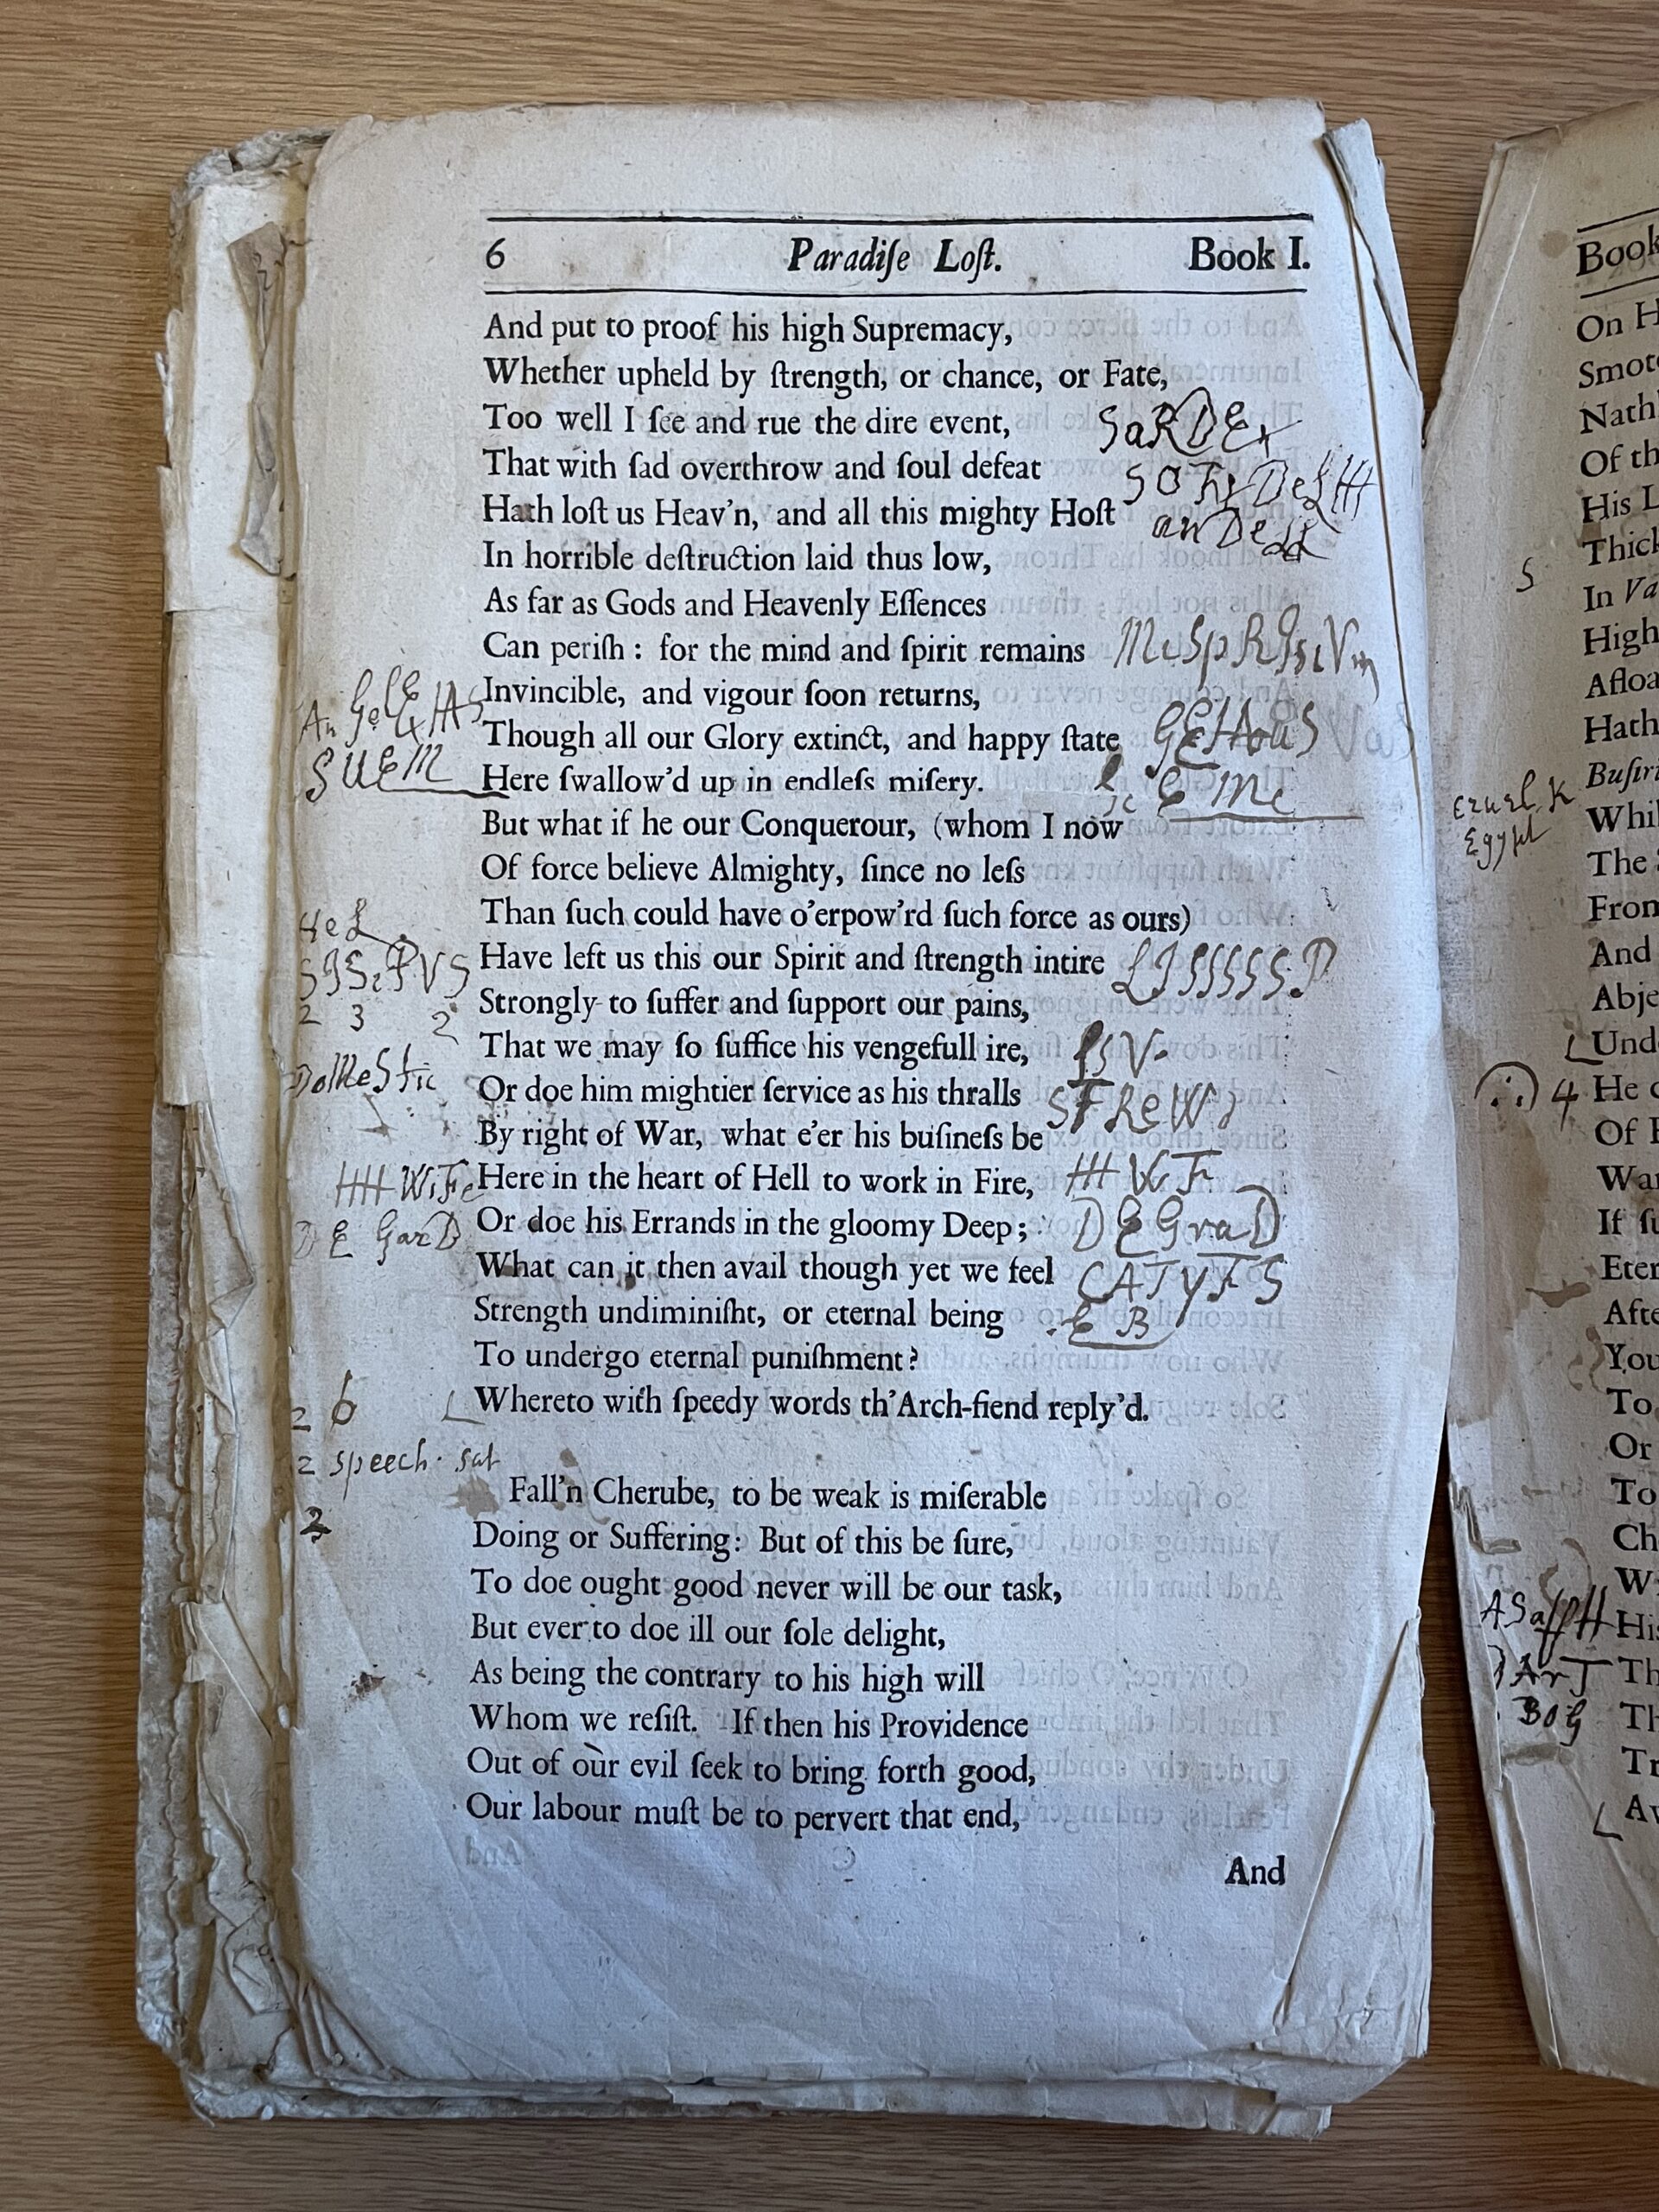 6 Paradiſe Loſt. Book I.
And put to proof his high Supremacy,
Whether upheld by ſtrength, or chance, or Fate,
Too well I ſee and rue the dire event,
SaRDEx
That with ſad overthrow and ſoul defeat
Hath loſt us Heav'n, and all this mighty Hoſt
In horrible deſtruction laid thus low,
As far as Gods and Heavenly Eſſences
Can periſh : for the mind and ſpirit remains
Invincible, and vigour ſoon returns,
Though all our Glory extinct, and happy ſtate
SUEM
Here ſwallow'd up in endleſs miſery.
But what if he our Conquerour, (whom I now
Of force believe Almighty, ſince no leſs
Than ſuch could have o'erpow'rd ſuch force as ours)
Have left us this our Spirit and ſtrength intire
2 3 2
Strongly to ſuffer and ſupport our pains,
That we may ſo ſuffice his vengefull ire,
Or doe him mightier ſervice as his thralls
By right of War, what e'er his buſineſs be
Here in the heart of Hell to work in Fire,
DE GarD
Or doe his Errands in the gloomy Deep;
DEGraD
What can it then avail though yet we feel
CATYFS
Strength undiminiſht, or eternal being
E B
To undergo eternal puniſhment?
2 6
Whereto with ſpeedy words th'Arch-fiend reply'd.
2 speech. sat
Fall'n Cherube, to be weak is miſerable
Doing or Suffering: But of this be ſure,
To doe ought good never will be our task,
But ever to doe ill our ſole delight,
As being the contrary to his high will
Whom we reſiſt. If then his Providence
Out of our evil ſeek to bring forth good,
Our labour muſt be to pervert that end,
And
Book
On H
Smote
Nath
Of th
His L
Thick
S
In Va
High
Afloa
Hath
Buſiri
Egypt
Whil
The
From
And
Abje
Unde
4
He
Of
War
If
Eter
Afte
You
To
Or
To
Ch
W
His
Th
BOG
Th
Tr
Av